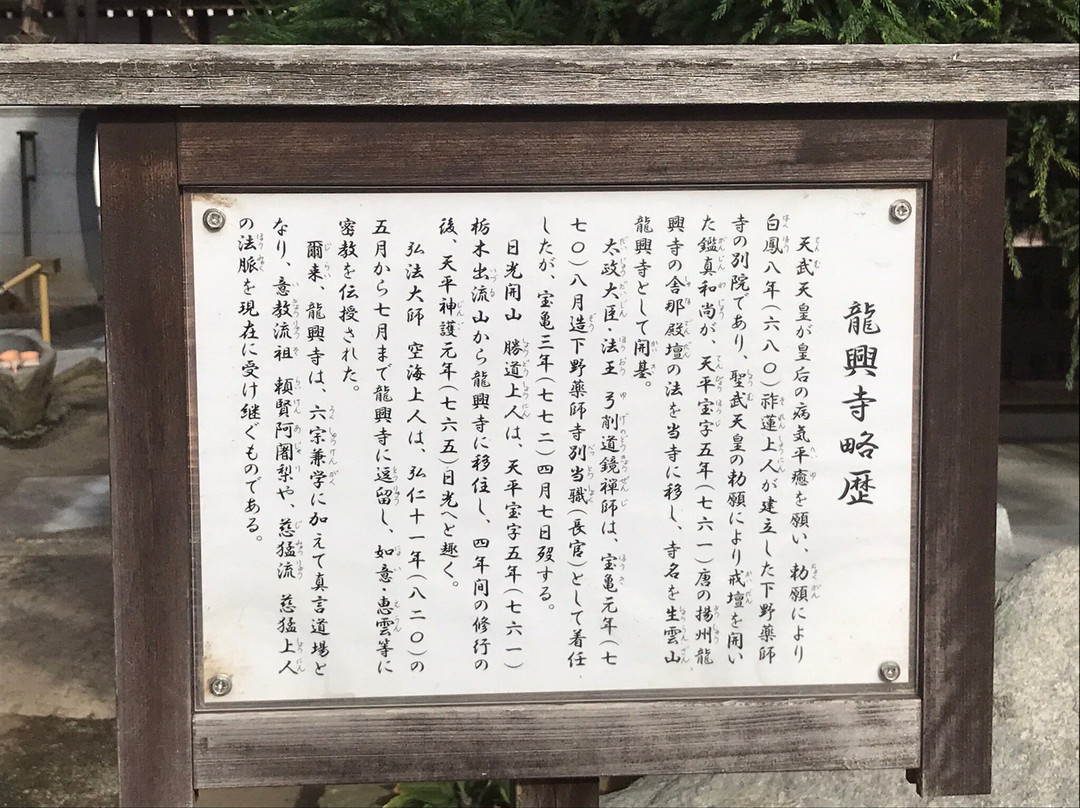 龍興寺略歴
天武天皇が皇后の病気平癒を願い、勅願により
白鳳八年(六八〇)祚蓮上人が建立した下野薬師
寺の別院であり、聖武天皇の勅願により戒壇を開い
た鑑真和尚が、天平宝字五年(七六一)唐の揚州龍
興寺の舎那殿壇の法を当寺に移し、寺名を生雲山
龍興寺として開基。
太政大臣・法王 弓削道鏡禅師は、宝亀元年(七
七〇)八月造下野薬師寺別当職(長官)として着任
したが、宝亀三年(七七二)四月七日歿する。
日光開山 勝道上人は、天平宝字五年(七六一)
栃木出流山から龍興寺に移住し、四年間の修行の
後、天平神護元年(七六五)日光へと趣く。
弘法大師 空海上人は、弘仁十一年(八二〇)の
五月から七月まで龍興寺に逗留し、如意・恵雲等に
密教を伝授された。
爾来、龍興寺は、六宗兼学に加えて真言道場と
なり、意教流祖 頼賢阿闍梨や、慈猛流 慈猛上人
の法脈を現在に受け継ぐものである。